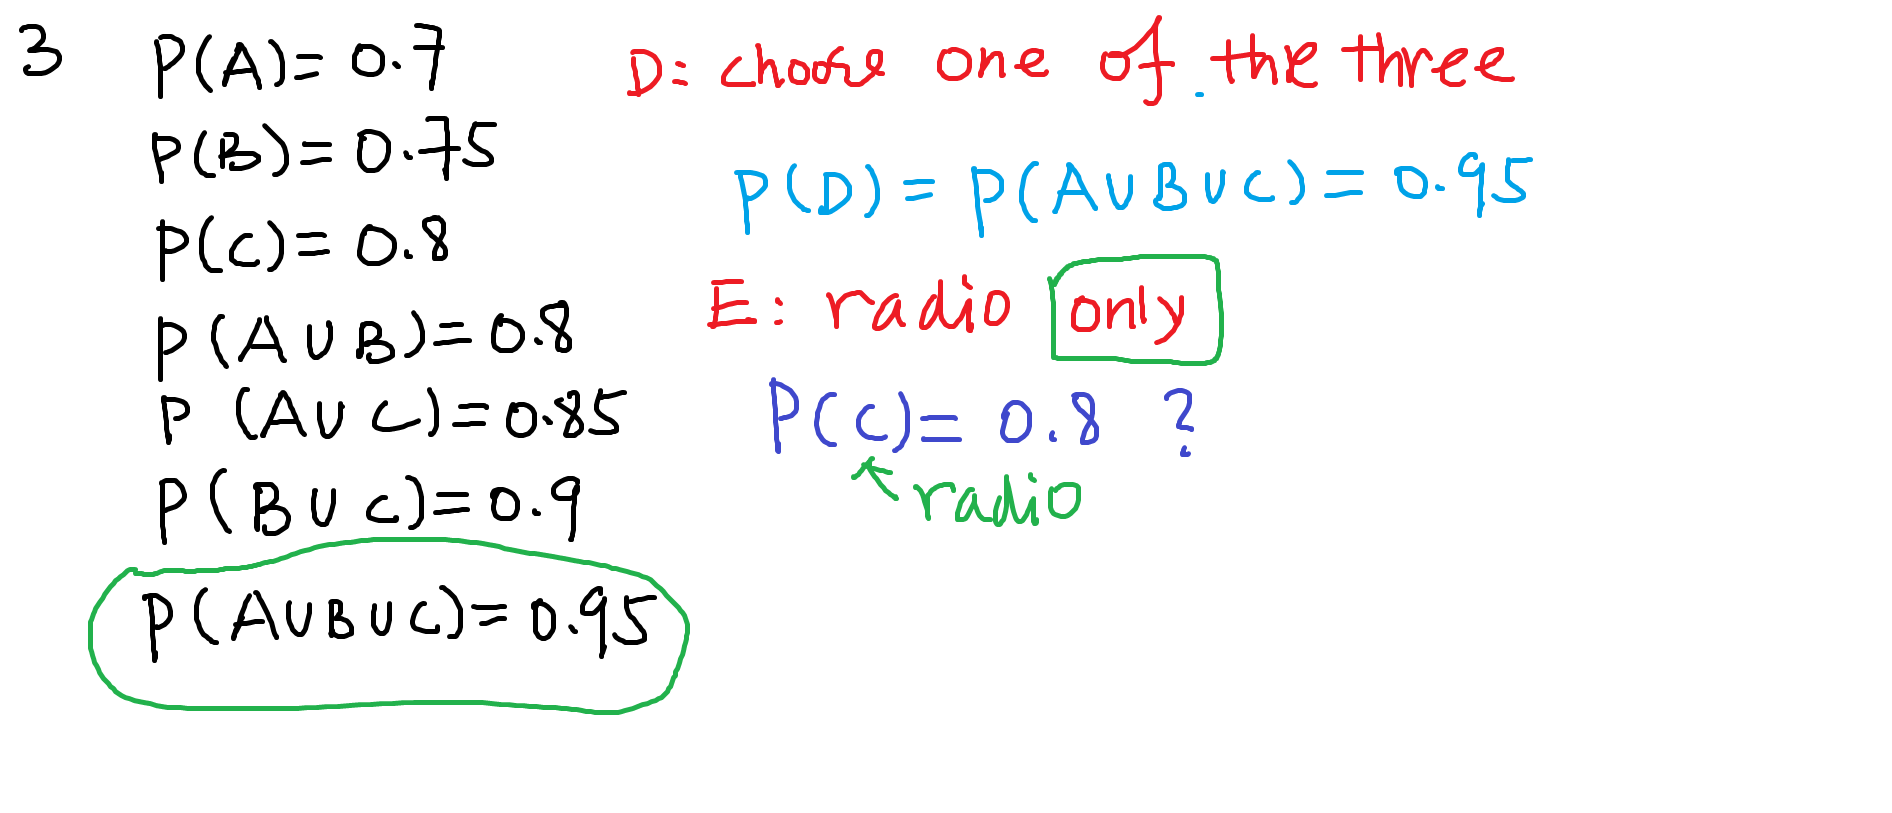 3
P(A)= 0.7
P(B)= 0.75
P(C)= 0.8
P(A∪B)= 0.8
P(A∪C)= 0.85
P(B∪C)= 0.9
P(A∪B∪C)= 0.95
D: choose one of the three
P(D) = P(A∪B∪C) = 0.95
E: radio only
P(C)= 0.8 ?
radio